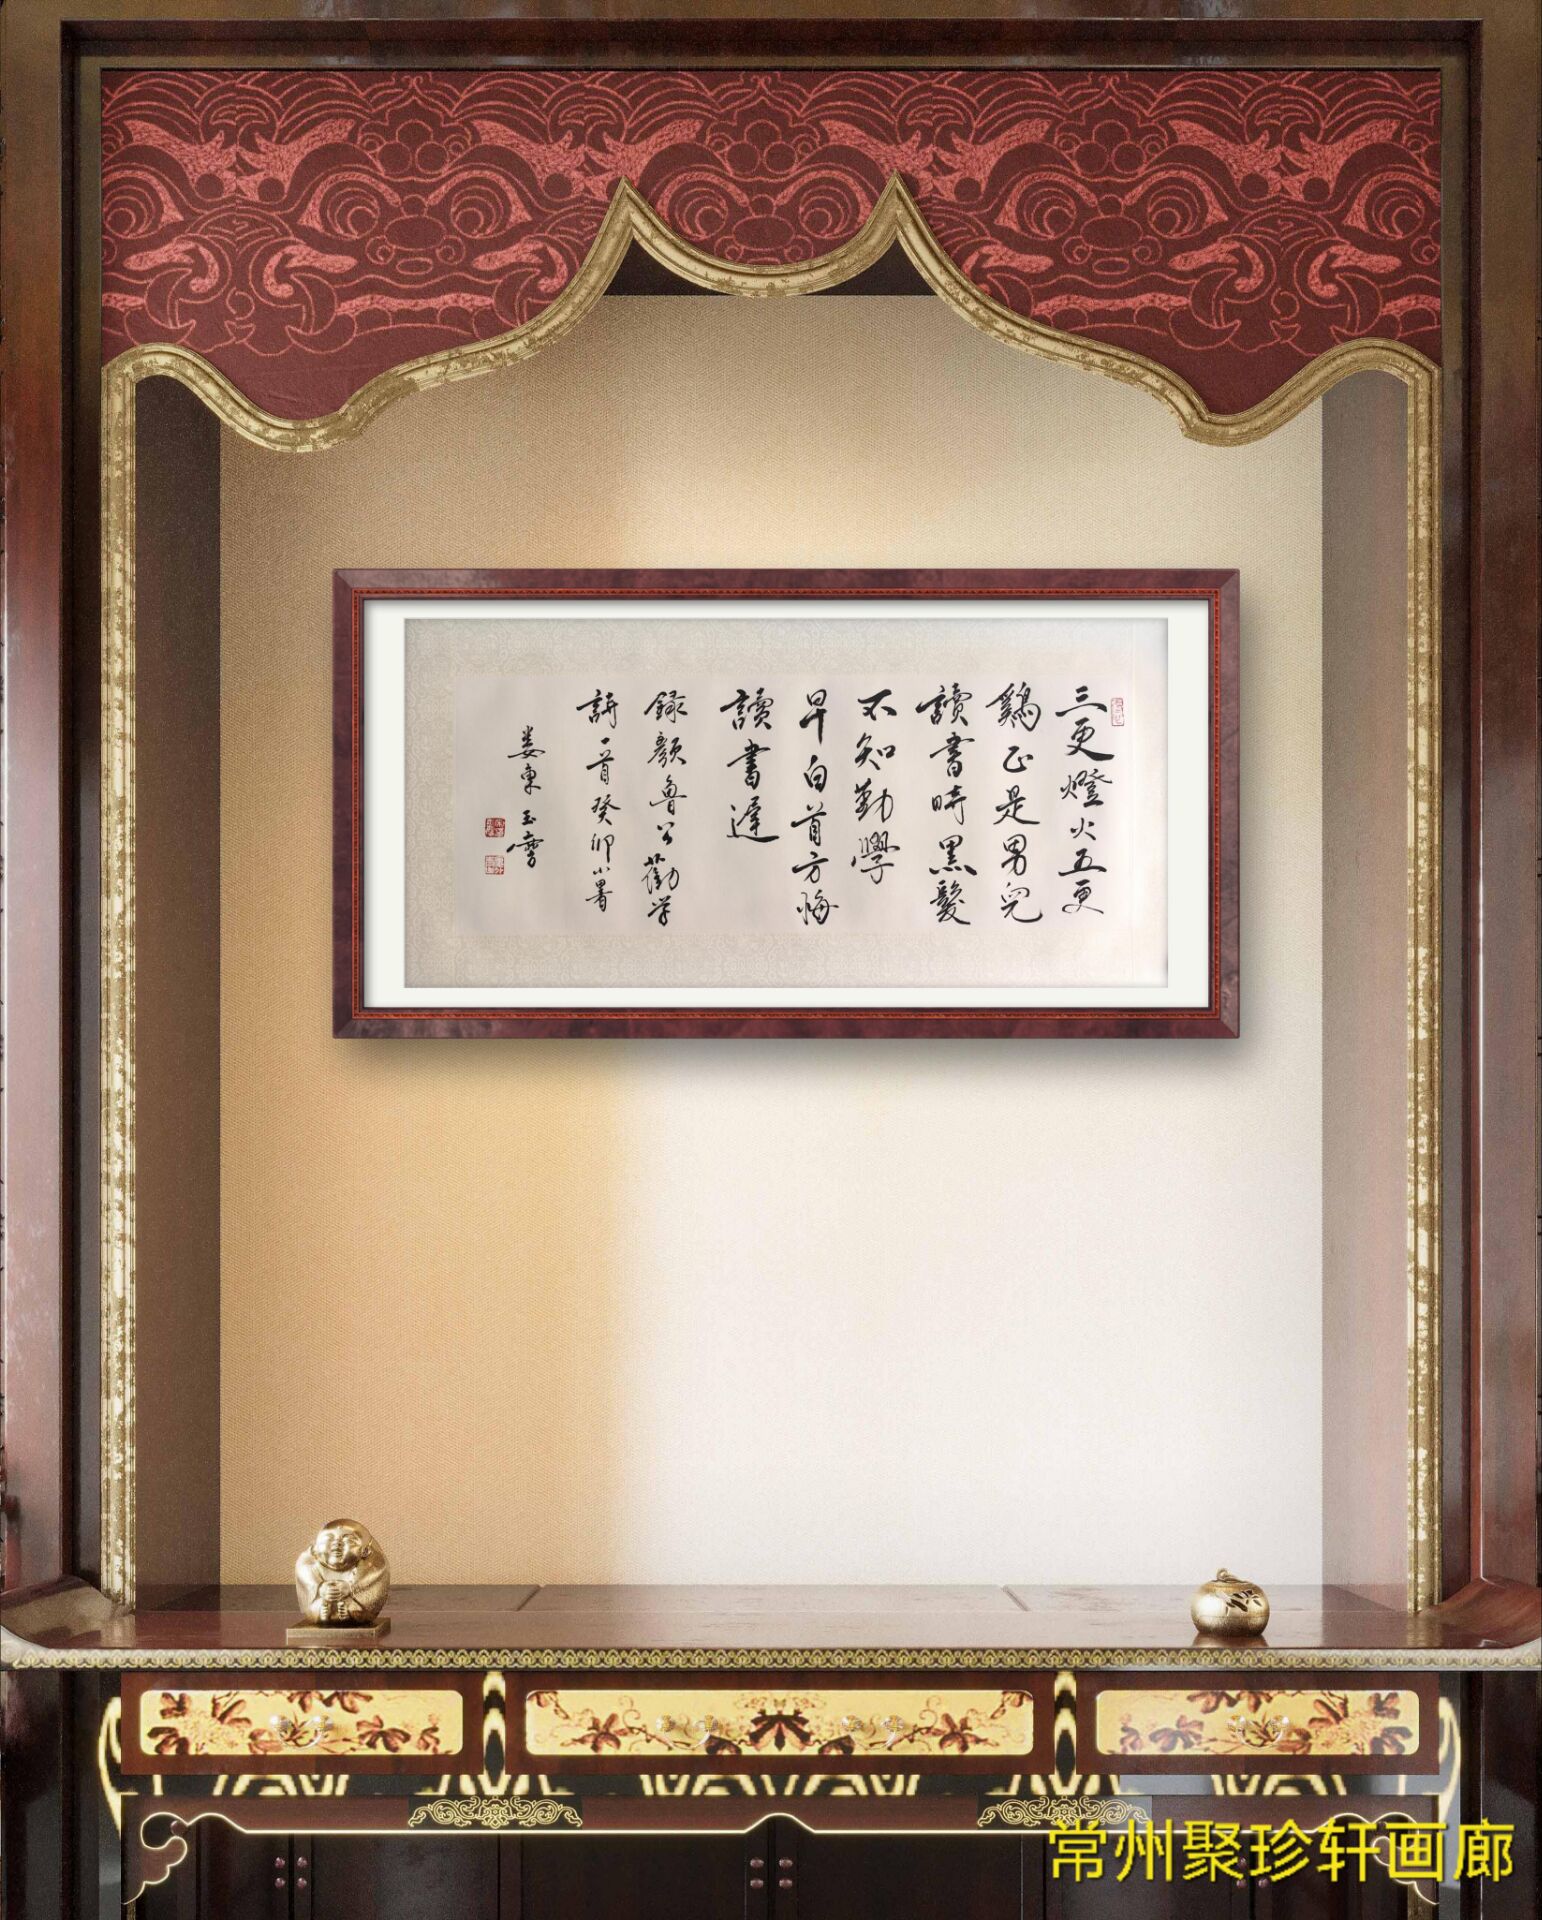 三更燈火五更
鷄正是男兒
讀書時黑髮
不知勤學
早白首方悔
讀書遲
録顏魯公勸学
詩一首癸卯小暑
娄東玉
常州聚珍轩画廊